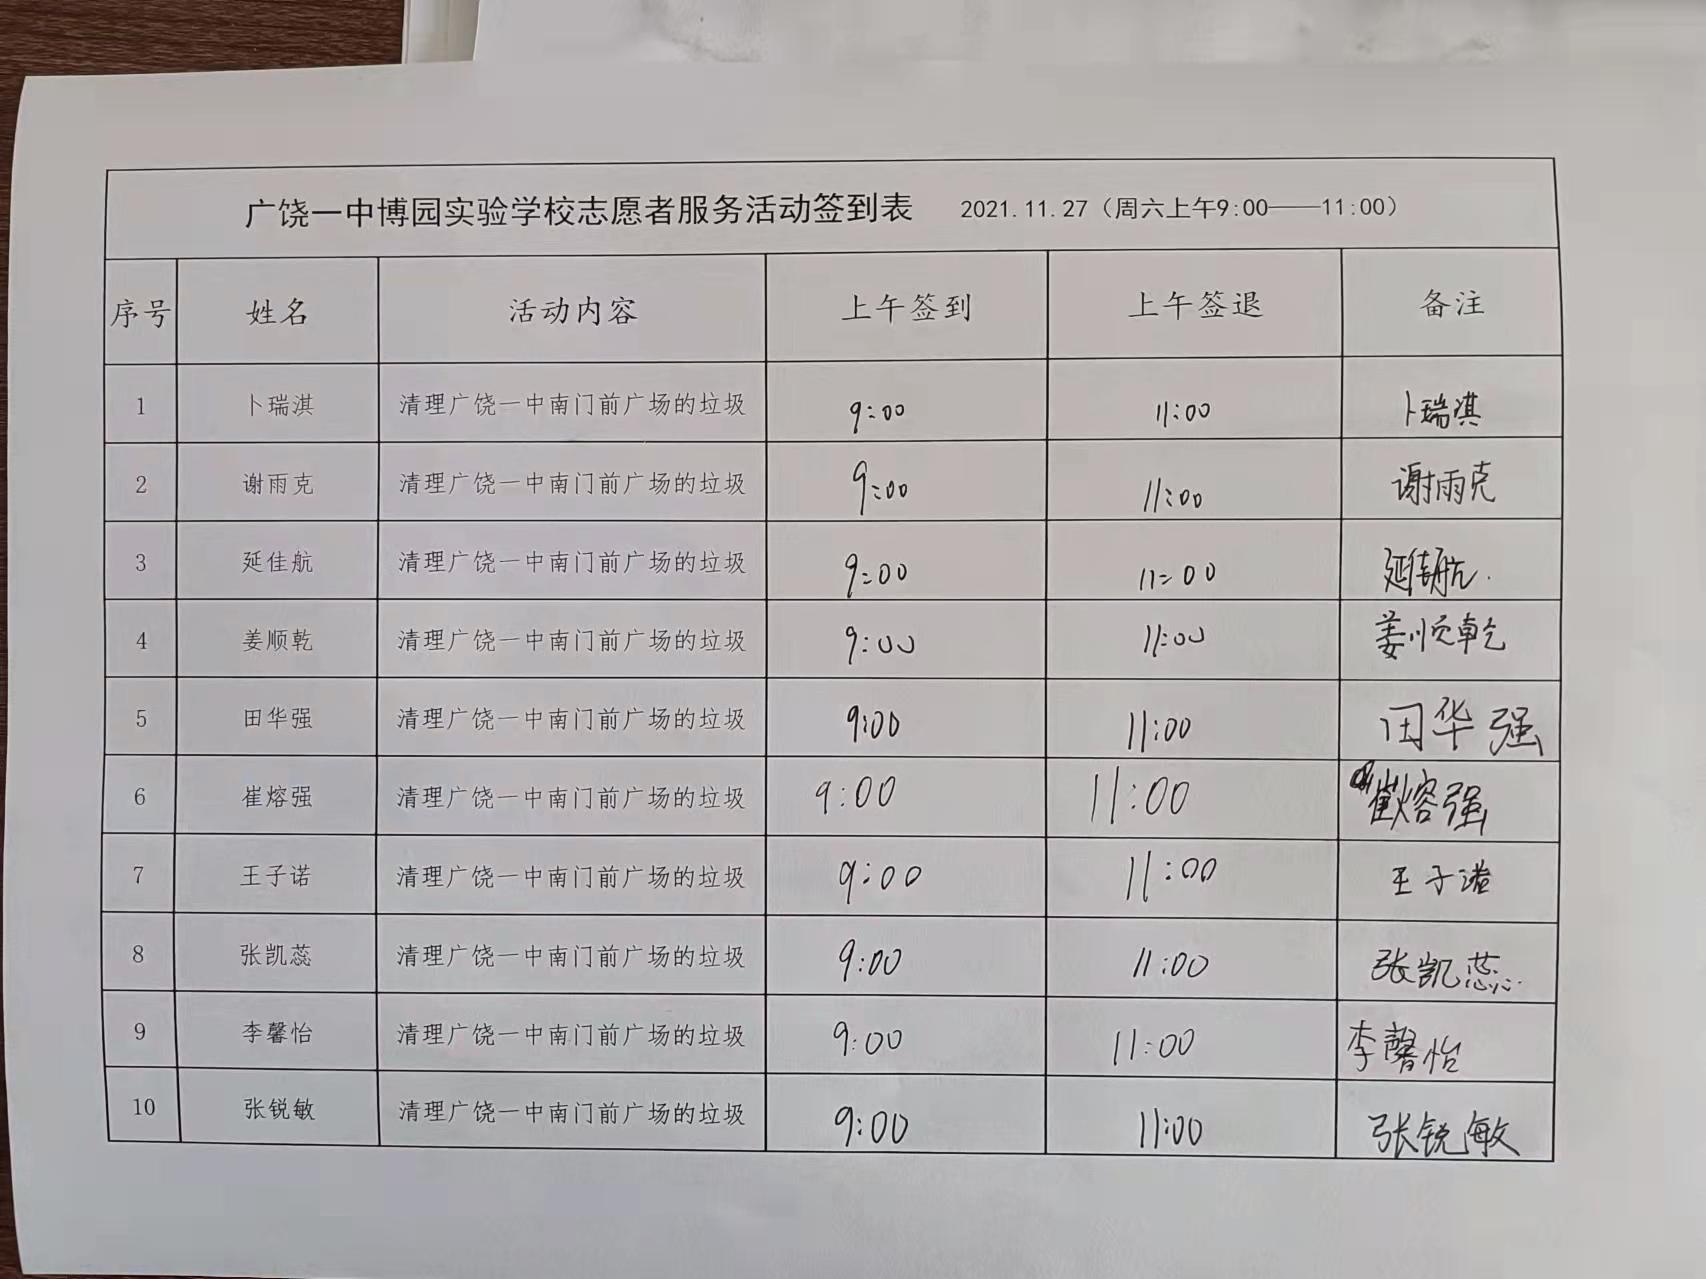 广饶一中博园实验学校志愿者服务活动签到表 2021.11.27（周六上午9:00——11:00）
序号 姓名 活动内容 上午签到 上午签退 备注
1 卜瑞淇 清理广饶一中南门前广场的垃圾 9:00 11:00 卜瑞淇
2 谢雨克 清理广饶一中南门前广场的垃圾 9:00 11:00 谢雨克
3 延佳航 清理广饶一中南门前广场的垃圾 9:00 11:00 延佳航.
4 姜顺乾 清理广饶一中南门前广场的垃圾 9:00 11:00 姜顺乾
5 田华强 清理广饶一中南门前广场的垃圾 9:00 11:00 田华强
6 崔熔强 清理广饶一中南门前广场的垃圾 9:00 11:00 崔熔强
7 王子诺 清理广饶一中南门前广场的垃圾 9:00 11:00 王子诺
8 张凯蕊 清理广饶一中南门前广场的垃圾 9:00 11:00 张凯蕊
9 李馨怡 清理广饶一中南门前广场的垃圾 9:00 11:00 李馨怡
10 张锐敏 清理广饶一中南门前广场的垃圾 9:00 11:00 张锐敏